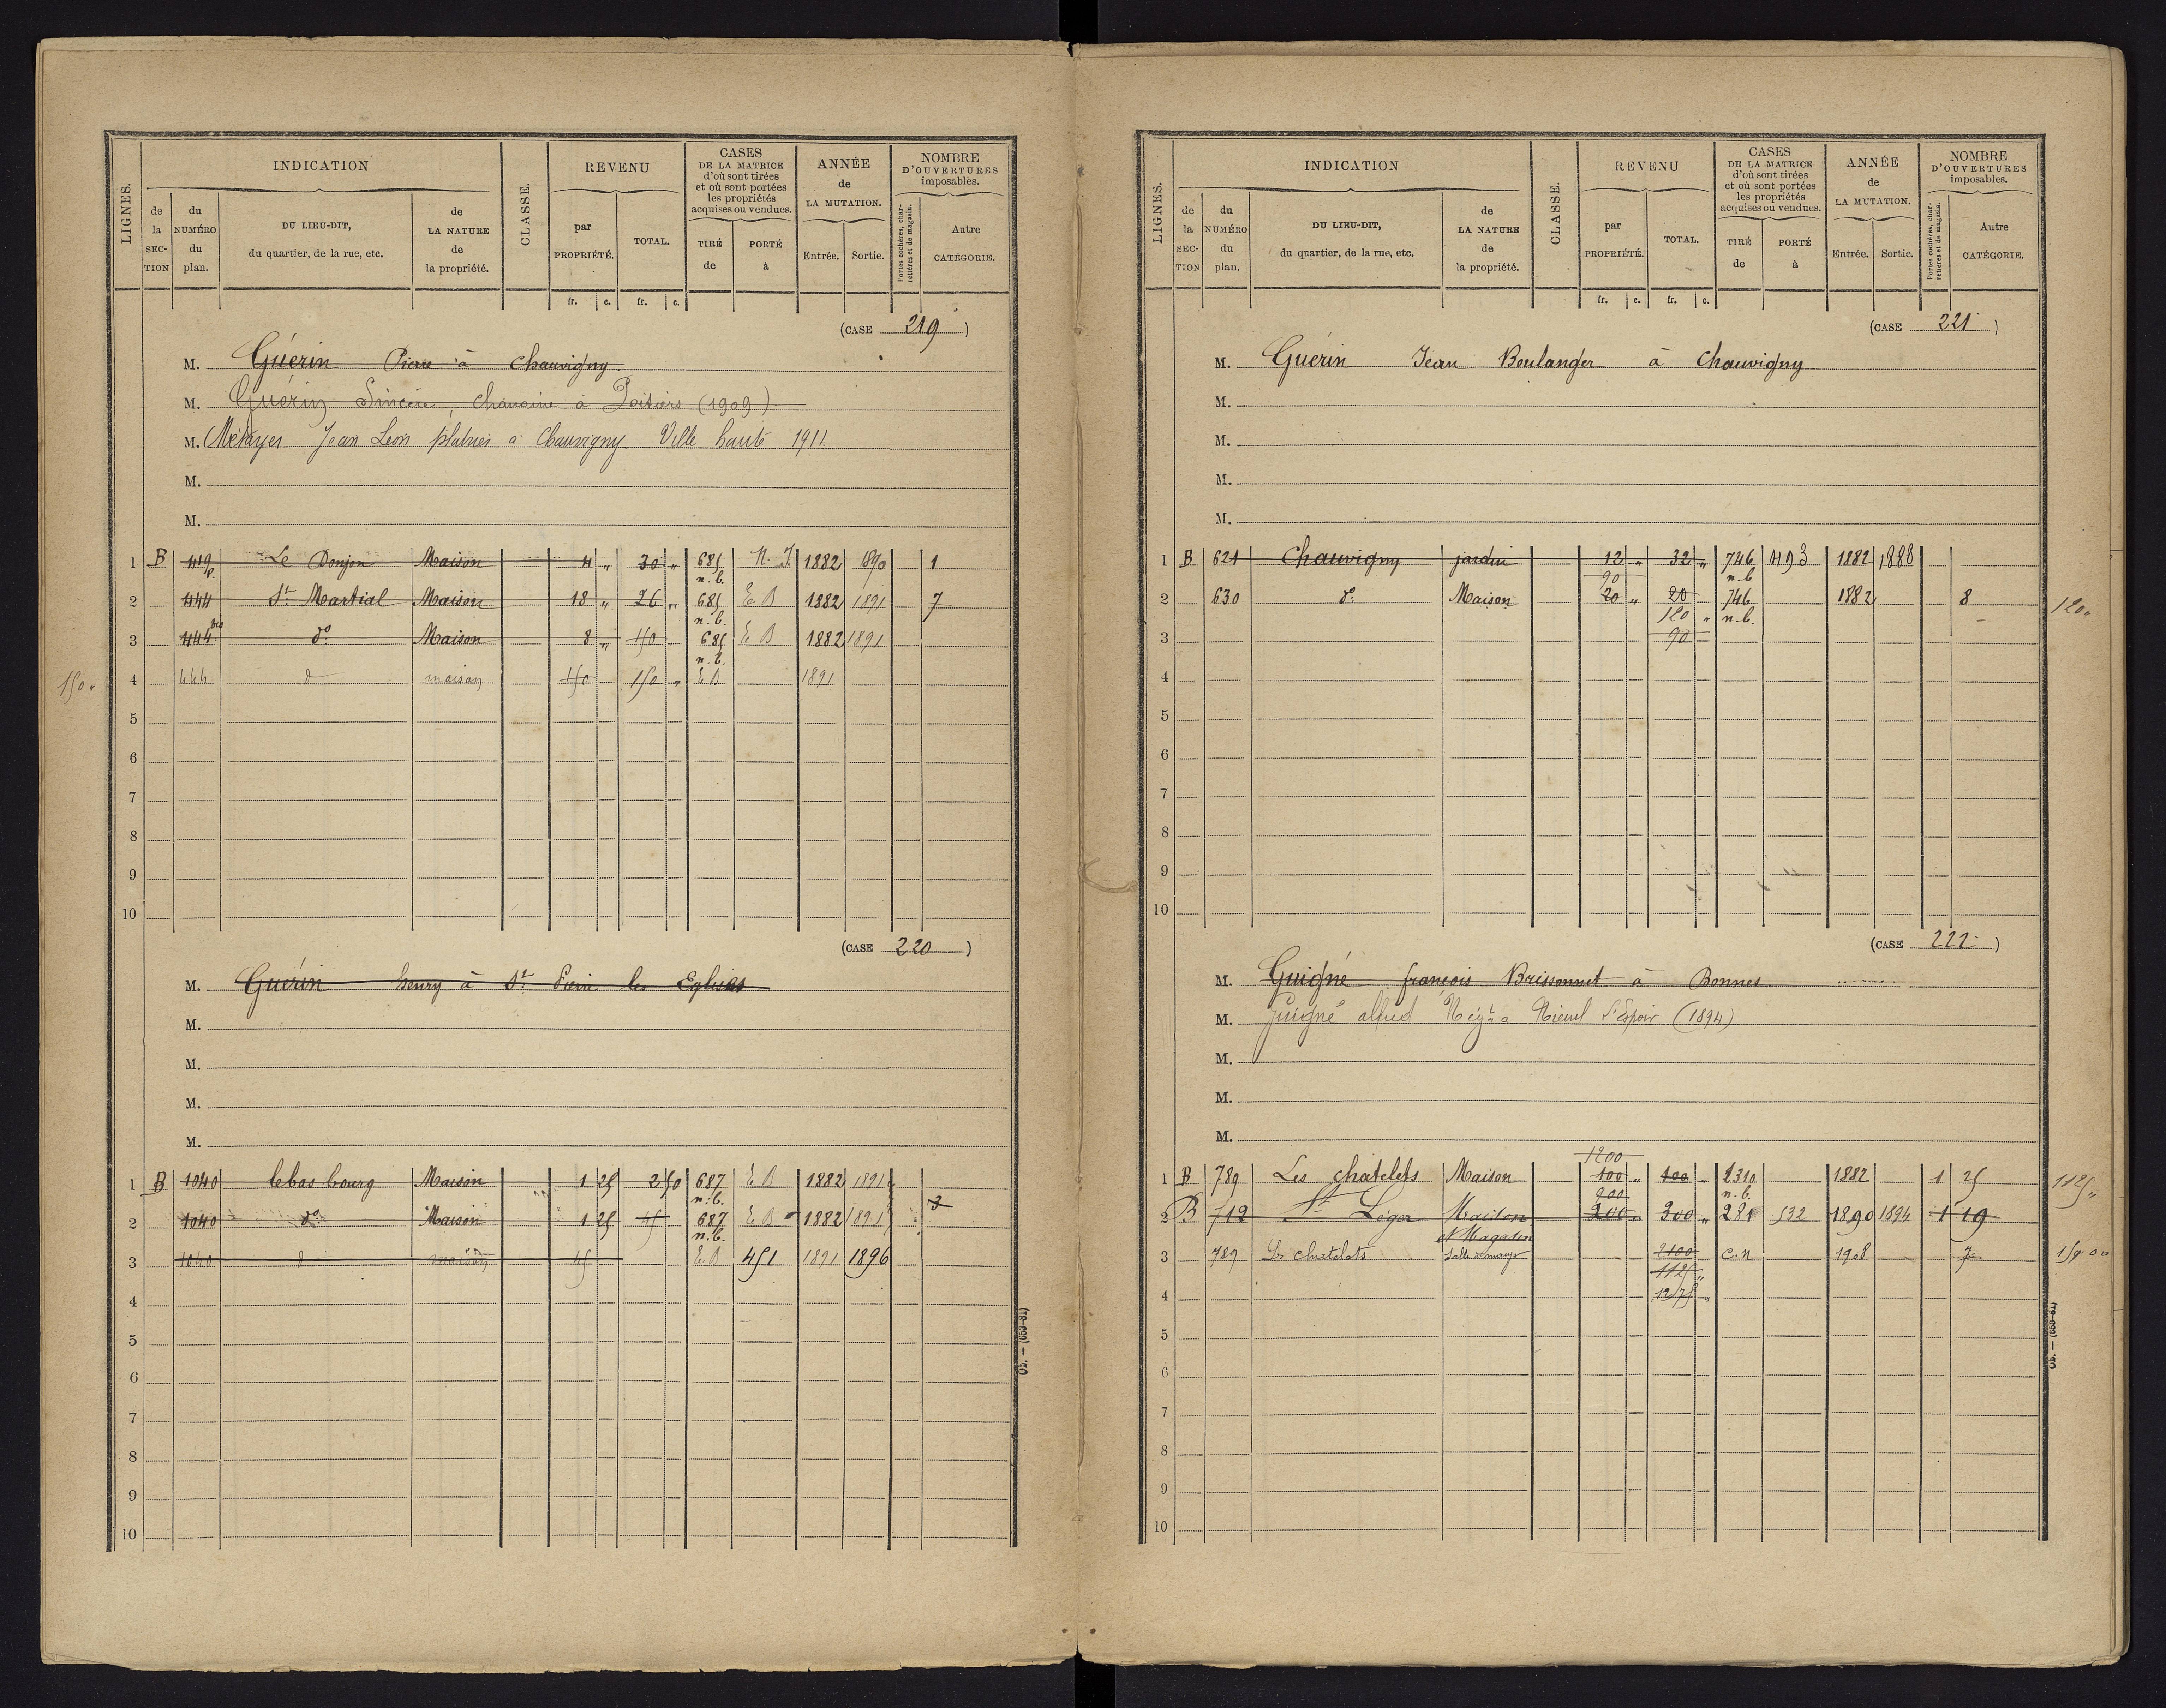 LIGNES. INDICATION CLASSE. REVENU CASES DE LA MATRICE d'où sont tirées et où sont portées les propriétés acquises ou vendues. ANNÉE de LA MUTATION. NOMBRE D'OUVERTURES imposables.
de la SECTION du NUMÉRO du plan. DU LIEU-DIT, du quartier, de la rue, etc. de LA NATURE de la propriété. par PROPRIÉTÉ. TOTAL. TIRÉ de PORTÉ à Entrée. Sortie. Portes cochères, charretières et de magasin. Autre CATÉGORIE.
fr. c. fr. c.
(CASE 219)
M. Guérin Pierre à Chauvigny
M. Guérin Sincère, chanoine à Poitiers (1909)
M. Métayer Jean Léon plâtrier à Chauvigny Ville haute 1911
M.
M.
1 B 419 p. Le Donjon Maison 4 " 30 " 685 n.b. N.I. 1882 1890 1
2 444 St. Martial Maison 18 " 26 " 685 n.b. E B 1882 1891 7
3 444 bis do. Maison 8 " 150 685 n.b. E B 1882 1891
150 " 4 444 d maison 150 150 " E B 1891
5
6
7
8
9
10
(CASE 220)
M. Guérin henry à St. Pierre les Eglises
M.
M.
M.
M.
1 B 1040 le bas bourg Maison 1 25 2 50 687 n.b. E B 1882 1891 3
2 1040 do. Maison 1 25 45 687 n.b. E B 1882 1891
3 1040 d maison 45 E B 451 1891 1896
4
5
6
7
8
9
10
LIGNES. INDICATION CLASSE. REVENU CASES DE LA MATRICE d'où sont tirées et où sont portées les propriétés acquises ou vendues. ANNÉE de LA MUTATION. NOMBRE D'OUVERTURES imposables.
de la SECTION du NUMÉRO du plan. DU LIEU-DIT, du quartier, de la rue, etc. de LA NATURE de la propriété. par PROPRIÉTÉ. TOTAL. TIRÉ de PORTÉ à Entrée. Sortie. Portes cochères, charretières et de magasin. Autre CATÉGORIE.
fr. c. fr. c.
(CASE 221)
M. Guérin Jean Boulanger à Chauvigny
M.
M.
M.
M.
1 B 621 Chauvigny jardin 12 " 32 " 746 n.b 493 1882 1888
90
2 630 do. Maison 20 " 20 746 n.b. 1882 8 120 "
120 "
3 90
4
5
6
7
8
9
10
(CASE 222)
M. Guigné françois Brissonnet à Bonnes
M. Guigné alfred Négt. à Nieuil L'Espoir (1894)
M.
M.
M.
1200
1 B 789 Les chatelets Maison 100 " 100 " 1310 n.b. 1882 1 25 1125 "
900
2 B 712 St Léger Maison et Magasin 200 " 300 " 281 532 1890 1894 1 19
3 789 Les chatelets Salle à manger 2100 C.N 1908 7
1125 "
4 1275 "
5
6
7
8
9
10